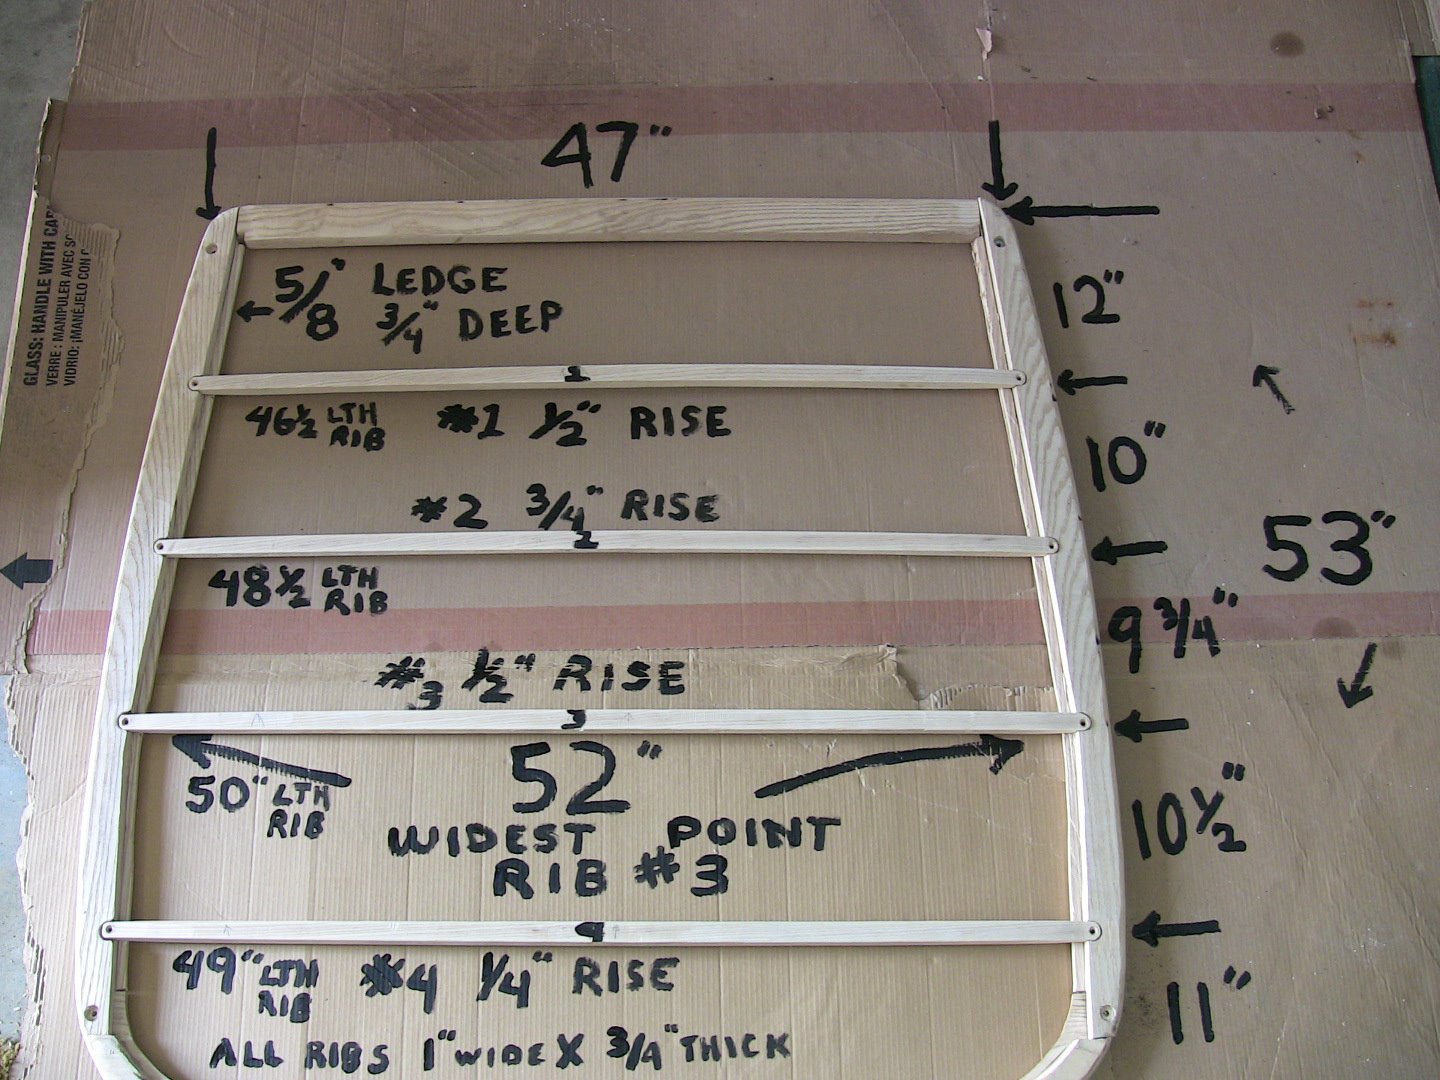 47"
GLASS: HANDLE WITH CAR
VERRE : MANIPULER AVEC SO
VIDRIO: ¡MANÉJELO CON C
5/8" LEDGE
3/4" DEEP
12"
1
46 1/2 LTH RIB #1 1/2" RISE
10"
#2 3/4" RISE
2
53"
48 1/2 LTH RIB
9 3/4"
#3 1/2" RISE
3
50" LTH RIB
52"
WIDEST POINT
RIB #3
10 1/2"
4
49" LTH RIB #4 1/4" RISE
11"
ALL RIBS 1" WIDE X 3/4" THICK